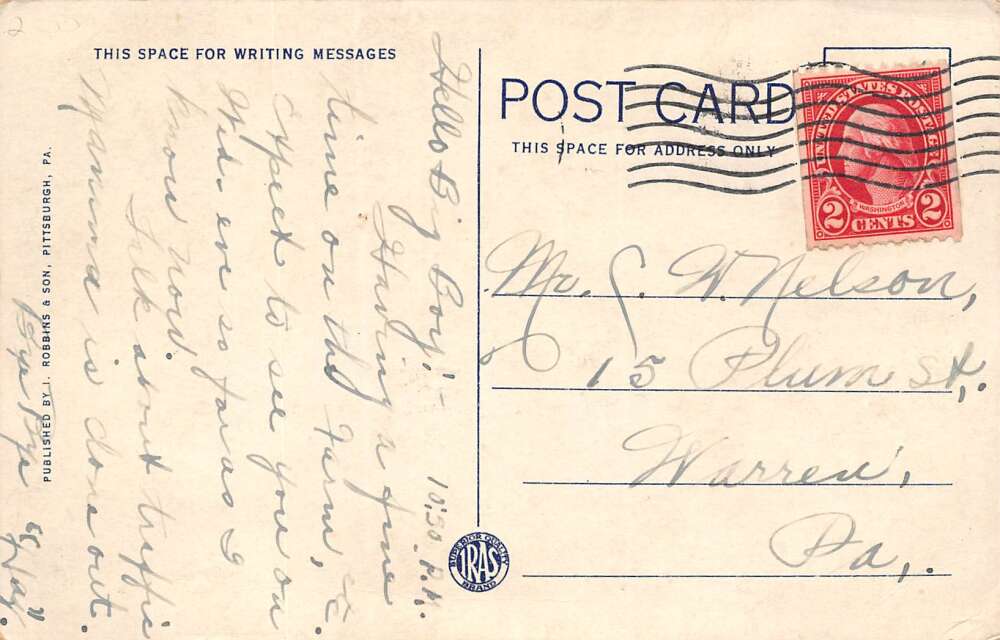 THIS SPACE FOR WRITING MESSAGES
Hello Big Boy! -
10:30 P.M.
Having a fine
time on the farm, &
expect to see you on
Wed. ever so far as I
know now.
Talk about traffic
Mamma is done out.
Bye Bye
"Hay."
PUBLISHED BY I. ROBBINS & SON, PITTSBURGH, PA.
POST CARD
THIS SPACE FOR ADDRESS ONLY
UNITED STATES POSTAGE
WASHINGTON
2 CENTS 2
Mr. S. W. Nelson,
15 Plum St.
Warren,
Pa.
SUPERIOR QUALITY
IRAS
BRAND